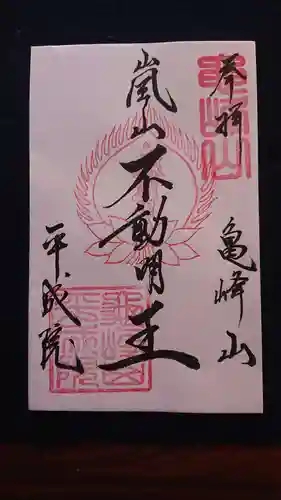 奉拝
亀峰山
嵐山
不動明王
平成院